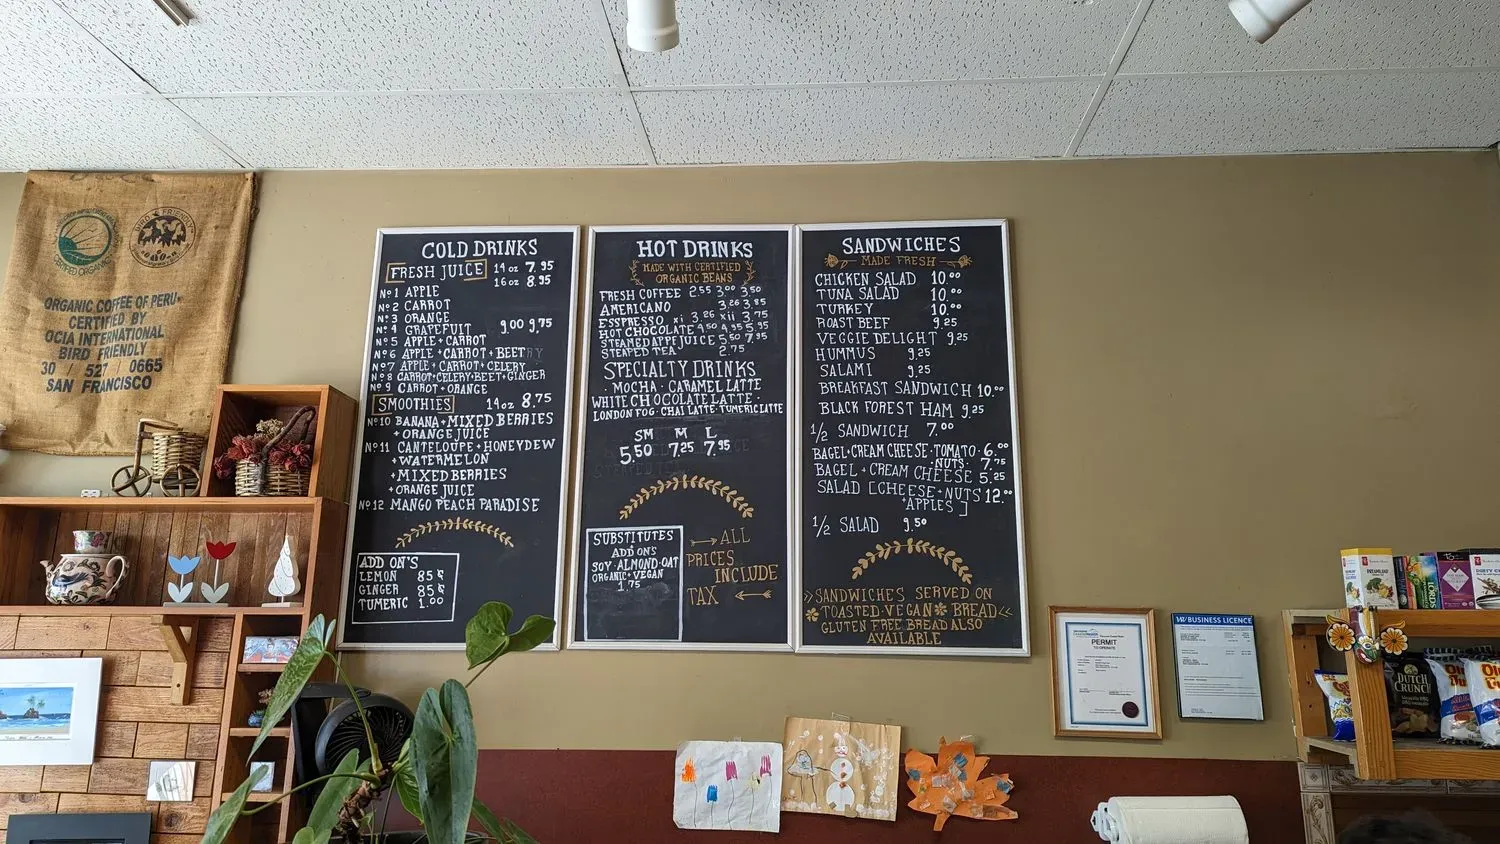 ORGANIC COFFEE OF PERU
CERTIFIED BY
OCIA INTERNATIONAL
BIRD FRIENDLY
30 / 527 / 0665
SAN FRANCISCO
COLD DRINKS
FRESH JUICE 14oz 7.95
16oz 8.95
No1 APPLE
No2 CARROT
No3 ORANGE
No4 GRAPEFRUIT 9.00 9.75
No5 APPLE+CARROT
No6 APPLE+CARROT+BEET
No7 APPLE+CARROT+CELERY
No8 CARROT+CELERY+BEET+GINGER
No9 CARROT+ORANGE
SMOOTHIES 14oz 8.75
No10 BANANA+MIXED BERRIES
+ORANGE JUICE
No11 CANTELOUPE+HONEYDEW
+WATERMELON
+MIXED BERRIES
+ORANGE JUICE
No12 MANGO PEACH PARADISE
ADD ON'S
LEMON 85¢
GINGER 85¢
TUMERIC 1.00
HOT DRINKS
MADE WITH CERTIFIED
ORGANIC BEANS
FRESH COFFEE 2.55 3.00 3.50
AMERICANO 3.26 3.85
ESSPRESSO xi 3.26 xii 3.75
HOT CHOCOLATE 4.50 4.95 5.95
STEAMED APPLE JUICE 5.50 7.95
STEAPED TEA 2.75
SPECIALTY DRINKS
· MOCHA · CARAMEL LATTE
WHITE CHOCOLATE LATTE ·
LONDON FOG · CHAI LATTE · TUMERIC LATTE
SM M L
5.50 7.25 7.95
SUBSTITUTES
ADD ONS
SOY · ALMOND · OAT
ORGANIC + VEGAN
1.75
ALL
PRICES
INCLUDE
TAX
SANDWICHES
MADE FRESH
CHICKEN SALAD 10.00
TUNA SALAD 10.00
TURKEY 10.00
ROAST BEEF 9.25
VEGGIE DELIGHT 9.25
HUMMUS 9.25
SALAMI 9.25
BREAKFAST SANDWICH 10.00
BLACK FOREST HAM 9.25
1/2 SANDWICH 7.00
BAGEL+CREAM CHEESE·TOMATO·6.00
·NUTS· 7.75
BAGEL + CREAM CHEESE 5.25
SALAD [CHEESE+NUTS 12.00
+APPLES]
1/2 SALAD 9.50
SANDWICHES SERVED ON
TOASTED·VEGAN BREAD
GLUTEN FREE BREAD ALSO
AVAILABLE
PERMIT
TO OPERATE
BUSINESS LICENCE
DUTCH
CRUNCH